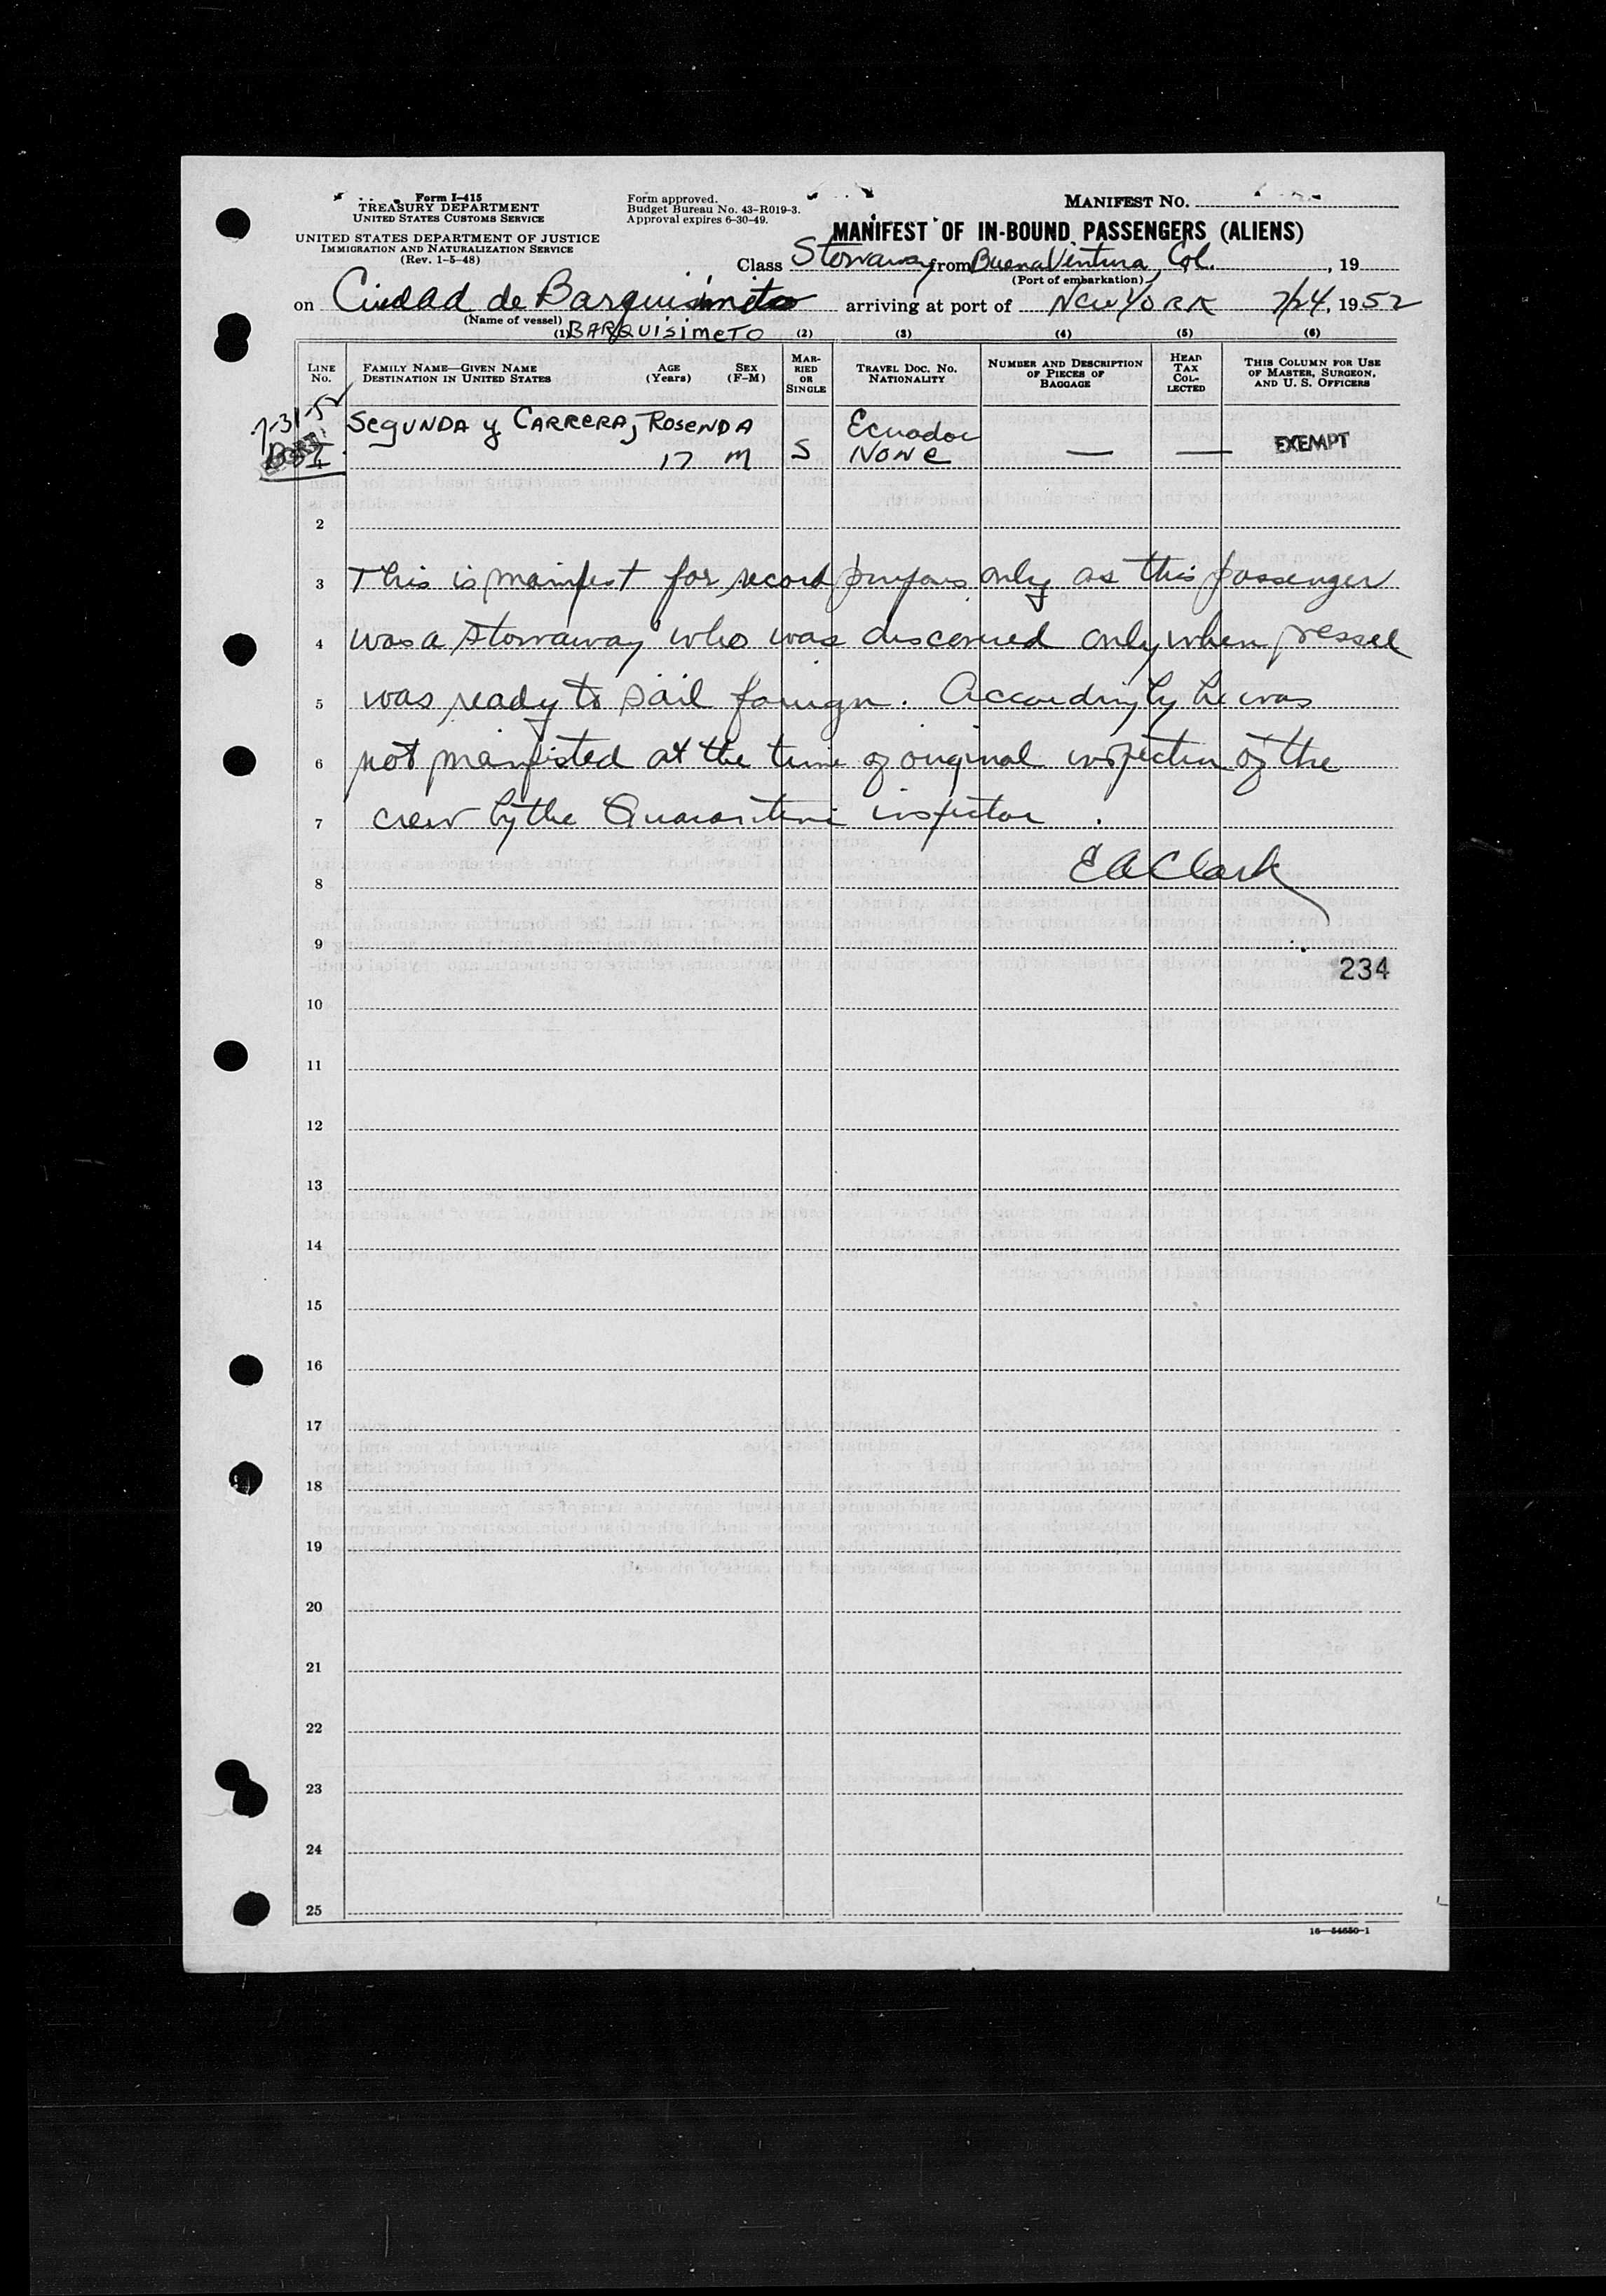 Form I-415
TREASURY DEPARTMENT
UNITED STATES CUSTOMS SERVICE
UNITED STATES DEPARTMENT OF JUSTICE
IMMIGRATION AND NATURALIZATION SERVICE
(Rev. 1-5-48)
Form approved.
Budget Bureau No. 43-R019-3.
Approval expires 6-30-49.
MANIFEST NO.
MANIFEST OF IN-BOUND PASSENGERS (ALIENS)
Class Stowaway from BuenaVentura, Col. , 19
(Port of embarkation)
on Ciudad de Barquisimeto arriving at port of New York 7/24, 1952
(Name of vessel)
(1) BARQUISIMETO (2) (3) (4) (5) (6)
LINE NO. FAMILY NAME—GIVEN NAME DESTINATION IN UNITED STATES AGE (Years) SEX (F-M) MARRIED OR SINGLE TRAVEL DOC. NO. NATIONALITY NUMBER AND DESCRIPTION OF PIECES OF BAGGAGE HEAD TAX COLLECTED THIS COLUMN FOR USE OF MASTER, SURGEON, AND U. S. OFFICERS
7-31-52
SEGUNDA y CARRERA, ROSENDA Ecuador
17 M S None — — EXEMPT
2
3 This is manifest for record purposes only as this passenger
4 was a stowaway who was discovered only when vessel
5 was ready to sail foreign. Accordingly he was
6 not manifested at the time of original inspection of the
7 crew by the Quarantine inspector.
8 E A Clark
9
234
10
11
12
13
14
15
16
17
18
19
20
21
22
23
24
25
16—54650-1